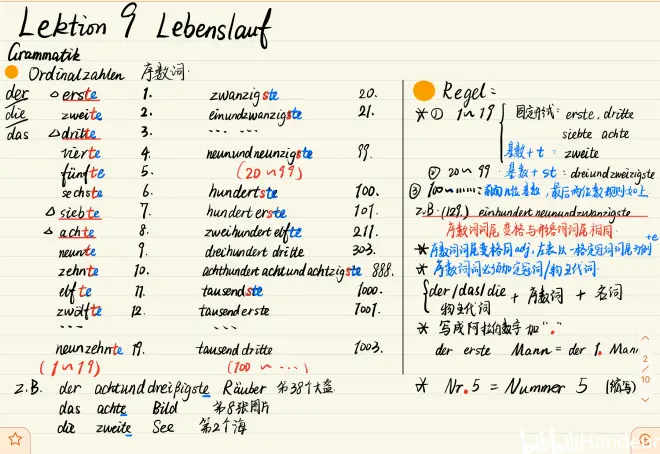 Lektion 9 Lebenslauf
Grammatik
Ordinalzahlen 序数词.
der
die
das
△ erste 1.
zweite 2.
△ dritte 3.
vierte 4.
fünfte 5.
sechste 6.
△ siebte 7.
△ achte 8.
neunte 9.
zehnte 10.
elfte 11.
zwölfte 12.
...
neunzehnte 19.
(1~19)
zwanzigste 20.
einundzwanzigste 21.
... ...
neunundneunzigste 99.
(20~99)
hundertste 100.
hunderterste 101.
zweihundertelfte 211.
dreihundertdritte 303.
achthundertachtundachtzigste 888.
tausendste 1000.
tausenderste 1001.
...
tausenddritte 1003.
(100~...)
z.B. der achtunddreißigste Räuber 第38个大盗
das achte Bild 第8张图片
die zweite See 第2个海
Regel:
* ① 1~19
固定形式: erste, dritte
siebte achte
基数+t: zweite
② 20~99 基数+st: dreiundzweizigste
③ 100~......: 基数, 最后两位数规则如上
z.B. (129.) einhundertneunundzwanzigste
序数词词尾变格与形容词词尾相同.
* 序数词词尾变格同adj, 左表以一格定冠词词尾为例
+e
* 序数词词必须加定冠词/物主代词.
der/das/die
物主代词
+ 序数词 + 名词
* 写成阿拉伯数字加"."
der erste Mann = der 1. Mann
* Nr.5 = Nummer 5 (缩写)
2
10
bilibili